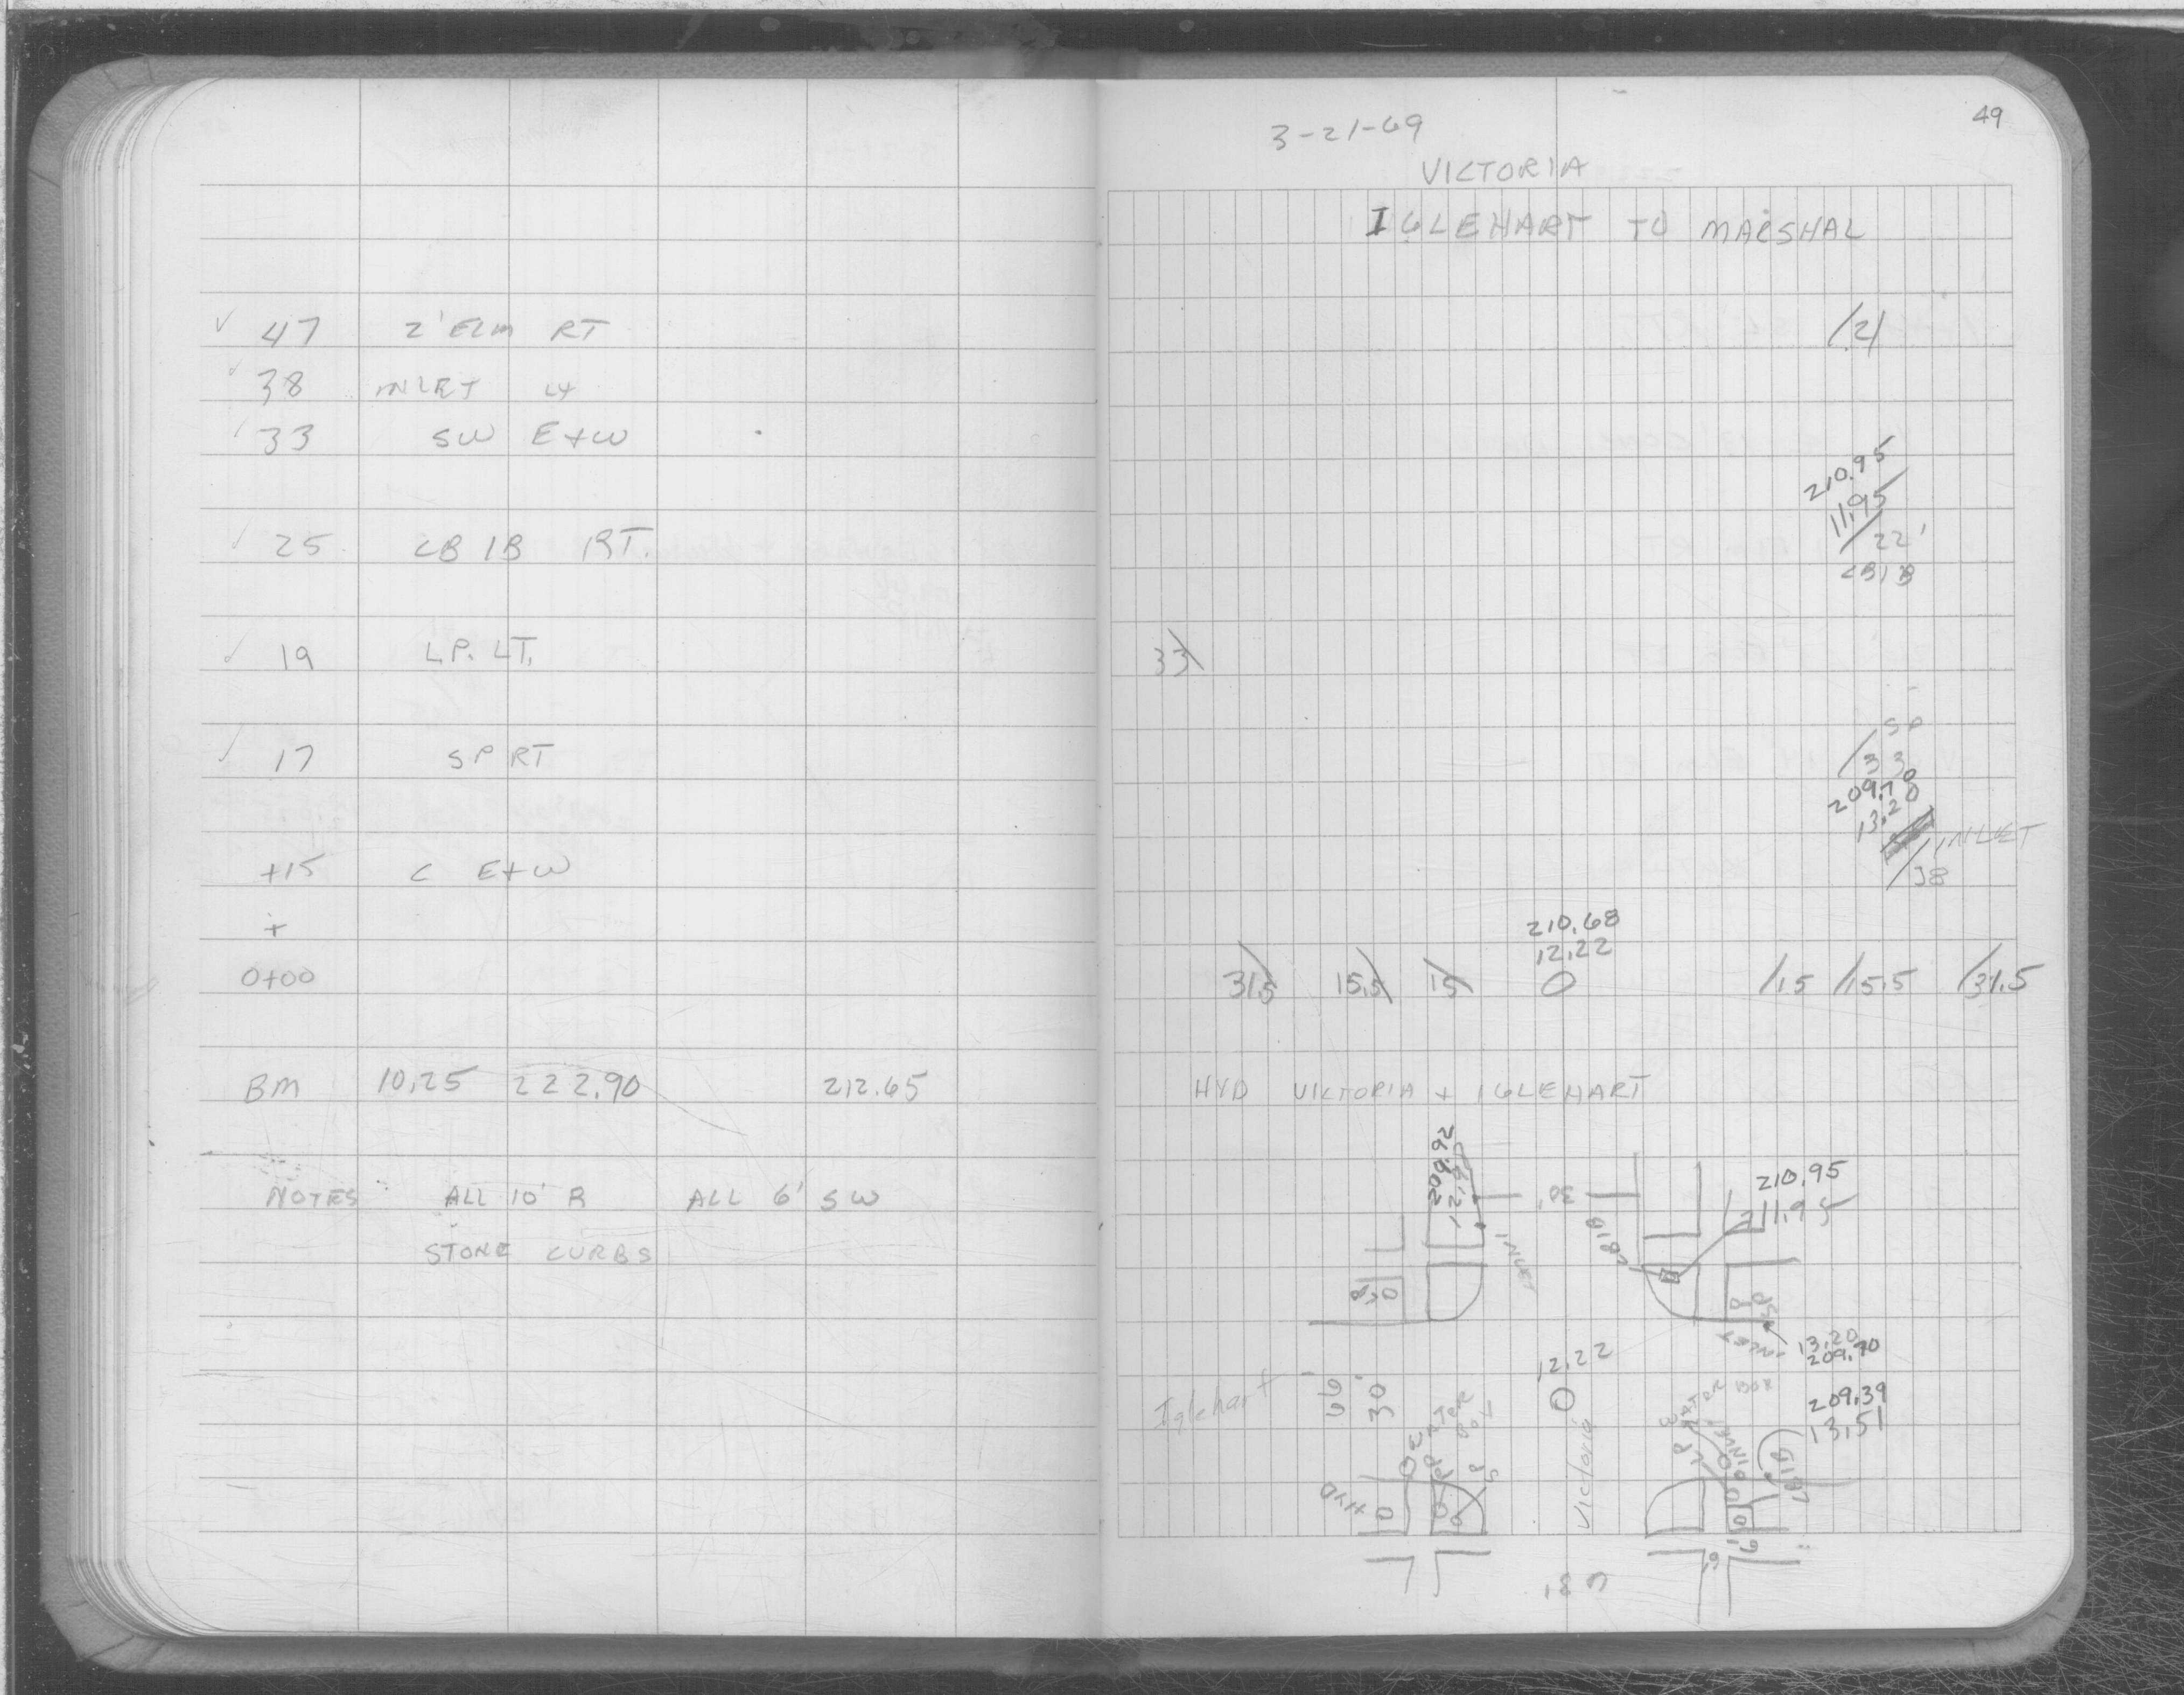 49
3-21-69
VICTORIA
IGLEHART TO MARSHAL
47 2' ELM RT
/21
38 INLET LT
33 SW E+W
210.95
11.95
/22'
CB1B
25 CB 1B RT.
19 L.P. LT.
33\
17 SP RT
SP
/33
209.70
13.20
INLET
/38
+15 C E+W
+
210.68
12.22
0+00
31.5\ 15.5\ 15\ 0 /15 /15.5 /31.5
BM 10.25 222.90 212.65
HYD VICTORIA + IGLEHART
NOTES ALL 10' R ALL 6' SW
STONE CURBS
209.92
30'
210.95
11.95
CB1B
INLET
13.20
209.70
12.22
0
Iglehart
66'
30'
Victoria
BOX
209.39
13.51
CB1B
HYD
SP
6'
6'